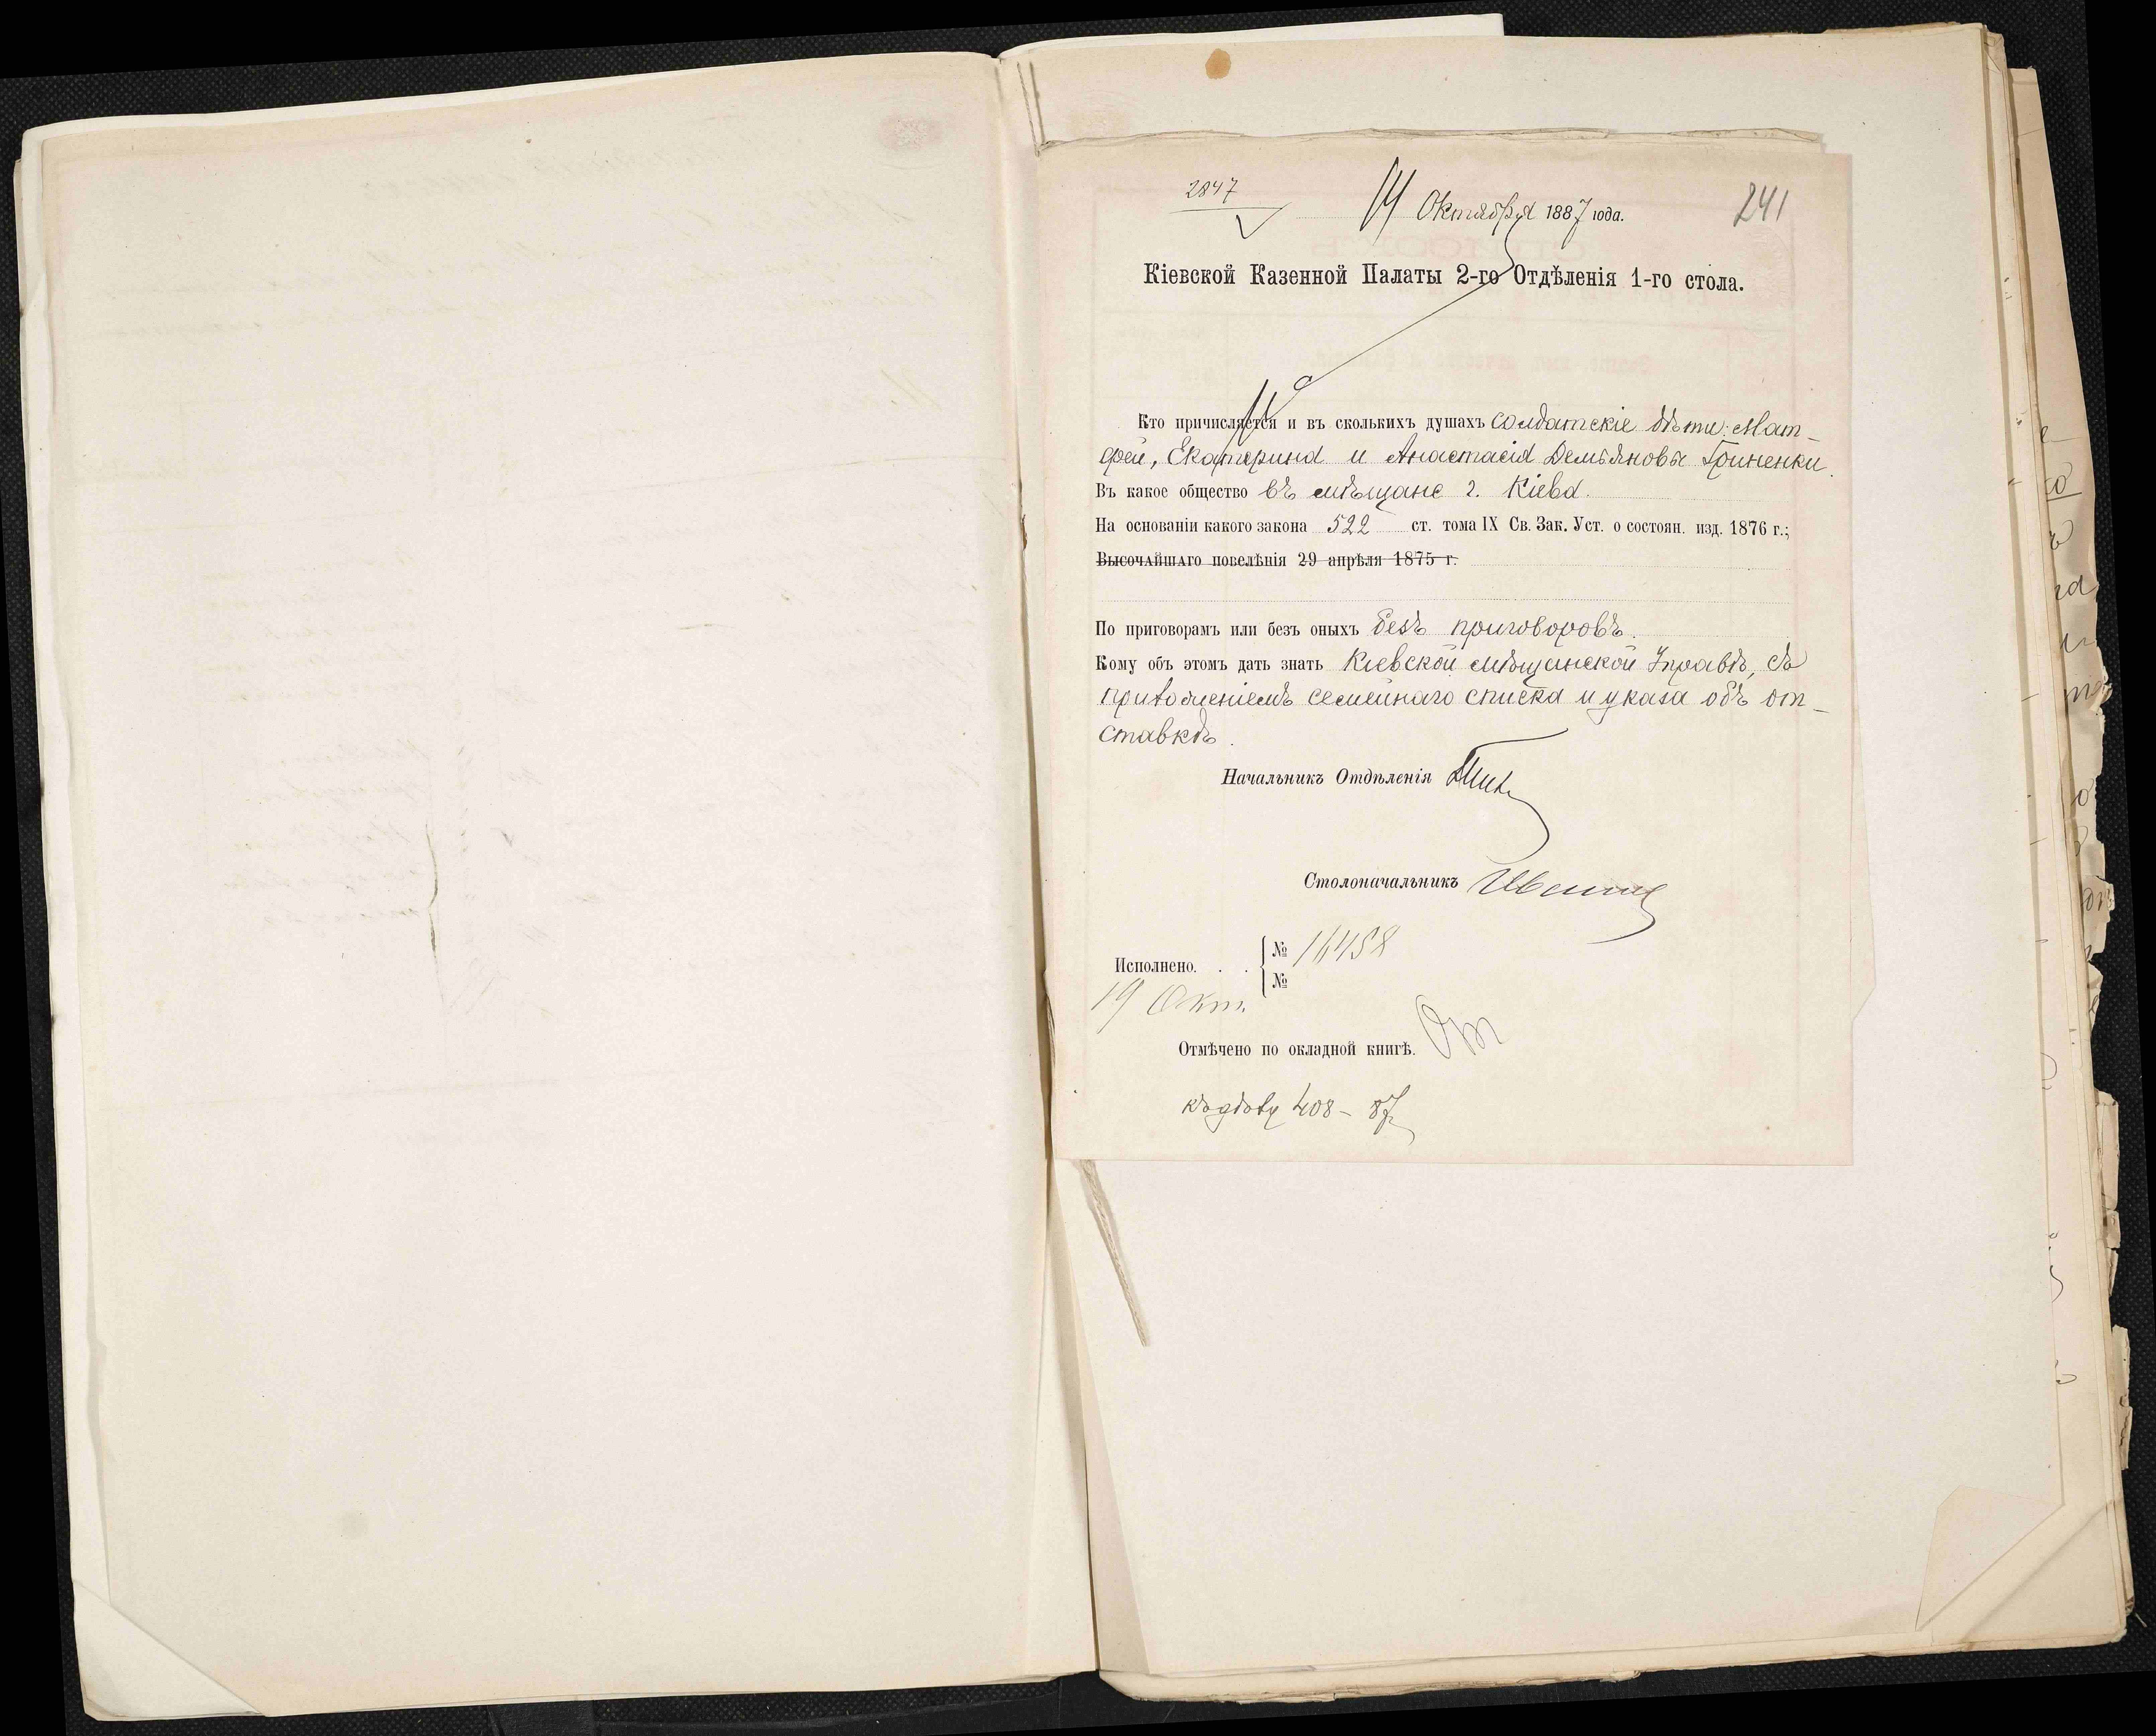 2847
14 Октября 1887 года.
241
Кіевской Казенной Палаты 2-го Отдѣленія 1-го стола.
Кто причисляется и въ сколькихъ душахъ солдатскіе дѣти: Мат-
фей, Екатерина и Анастасія Демьяновы Гриненки.
Въ какое общество въ мѣщане г. Кіева.
На основаніи какого закона 522 ст. тома IX Св. Зак. Уст. о состоян. изд. 1876 г.;
Высочайшаго повелѣнія 29 апрѣля 1875 г.
По приговорамъ или безъ оныхъ безъ приговоровъ.
Кому объ этомъ дать знать Кіевской мѣщанской Управѣ, съ
приложеніемъ семейнаго списка и указа объ от-
ставкѣ.
Начальникъ Отдѣленія
Столоначальникъ
№ 16458
Исполнено. . .
№
19 Окт.
Отмѣчено по окладной книгѣ.
къ дѣлу 408 - 87